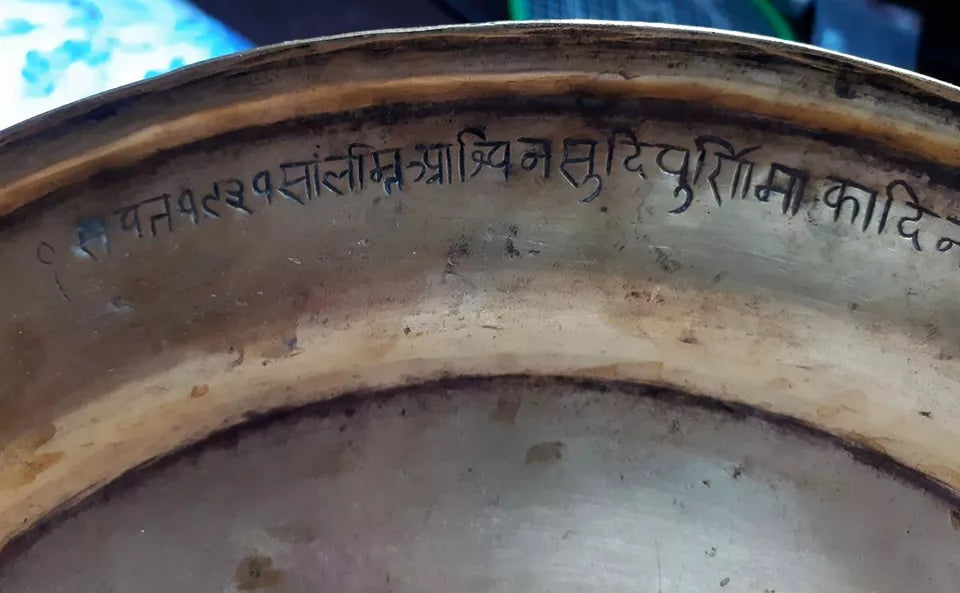 सम्वत १९३१ सालीम्न आश्विन सुदि पुर्णिमा का दिन